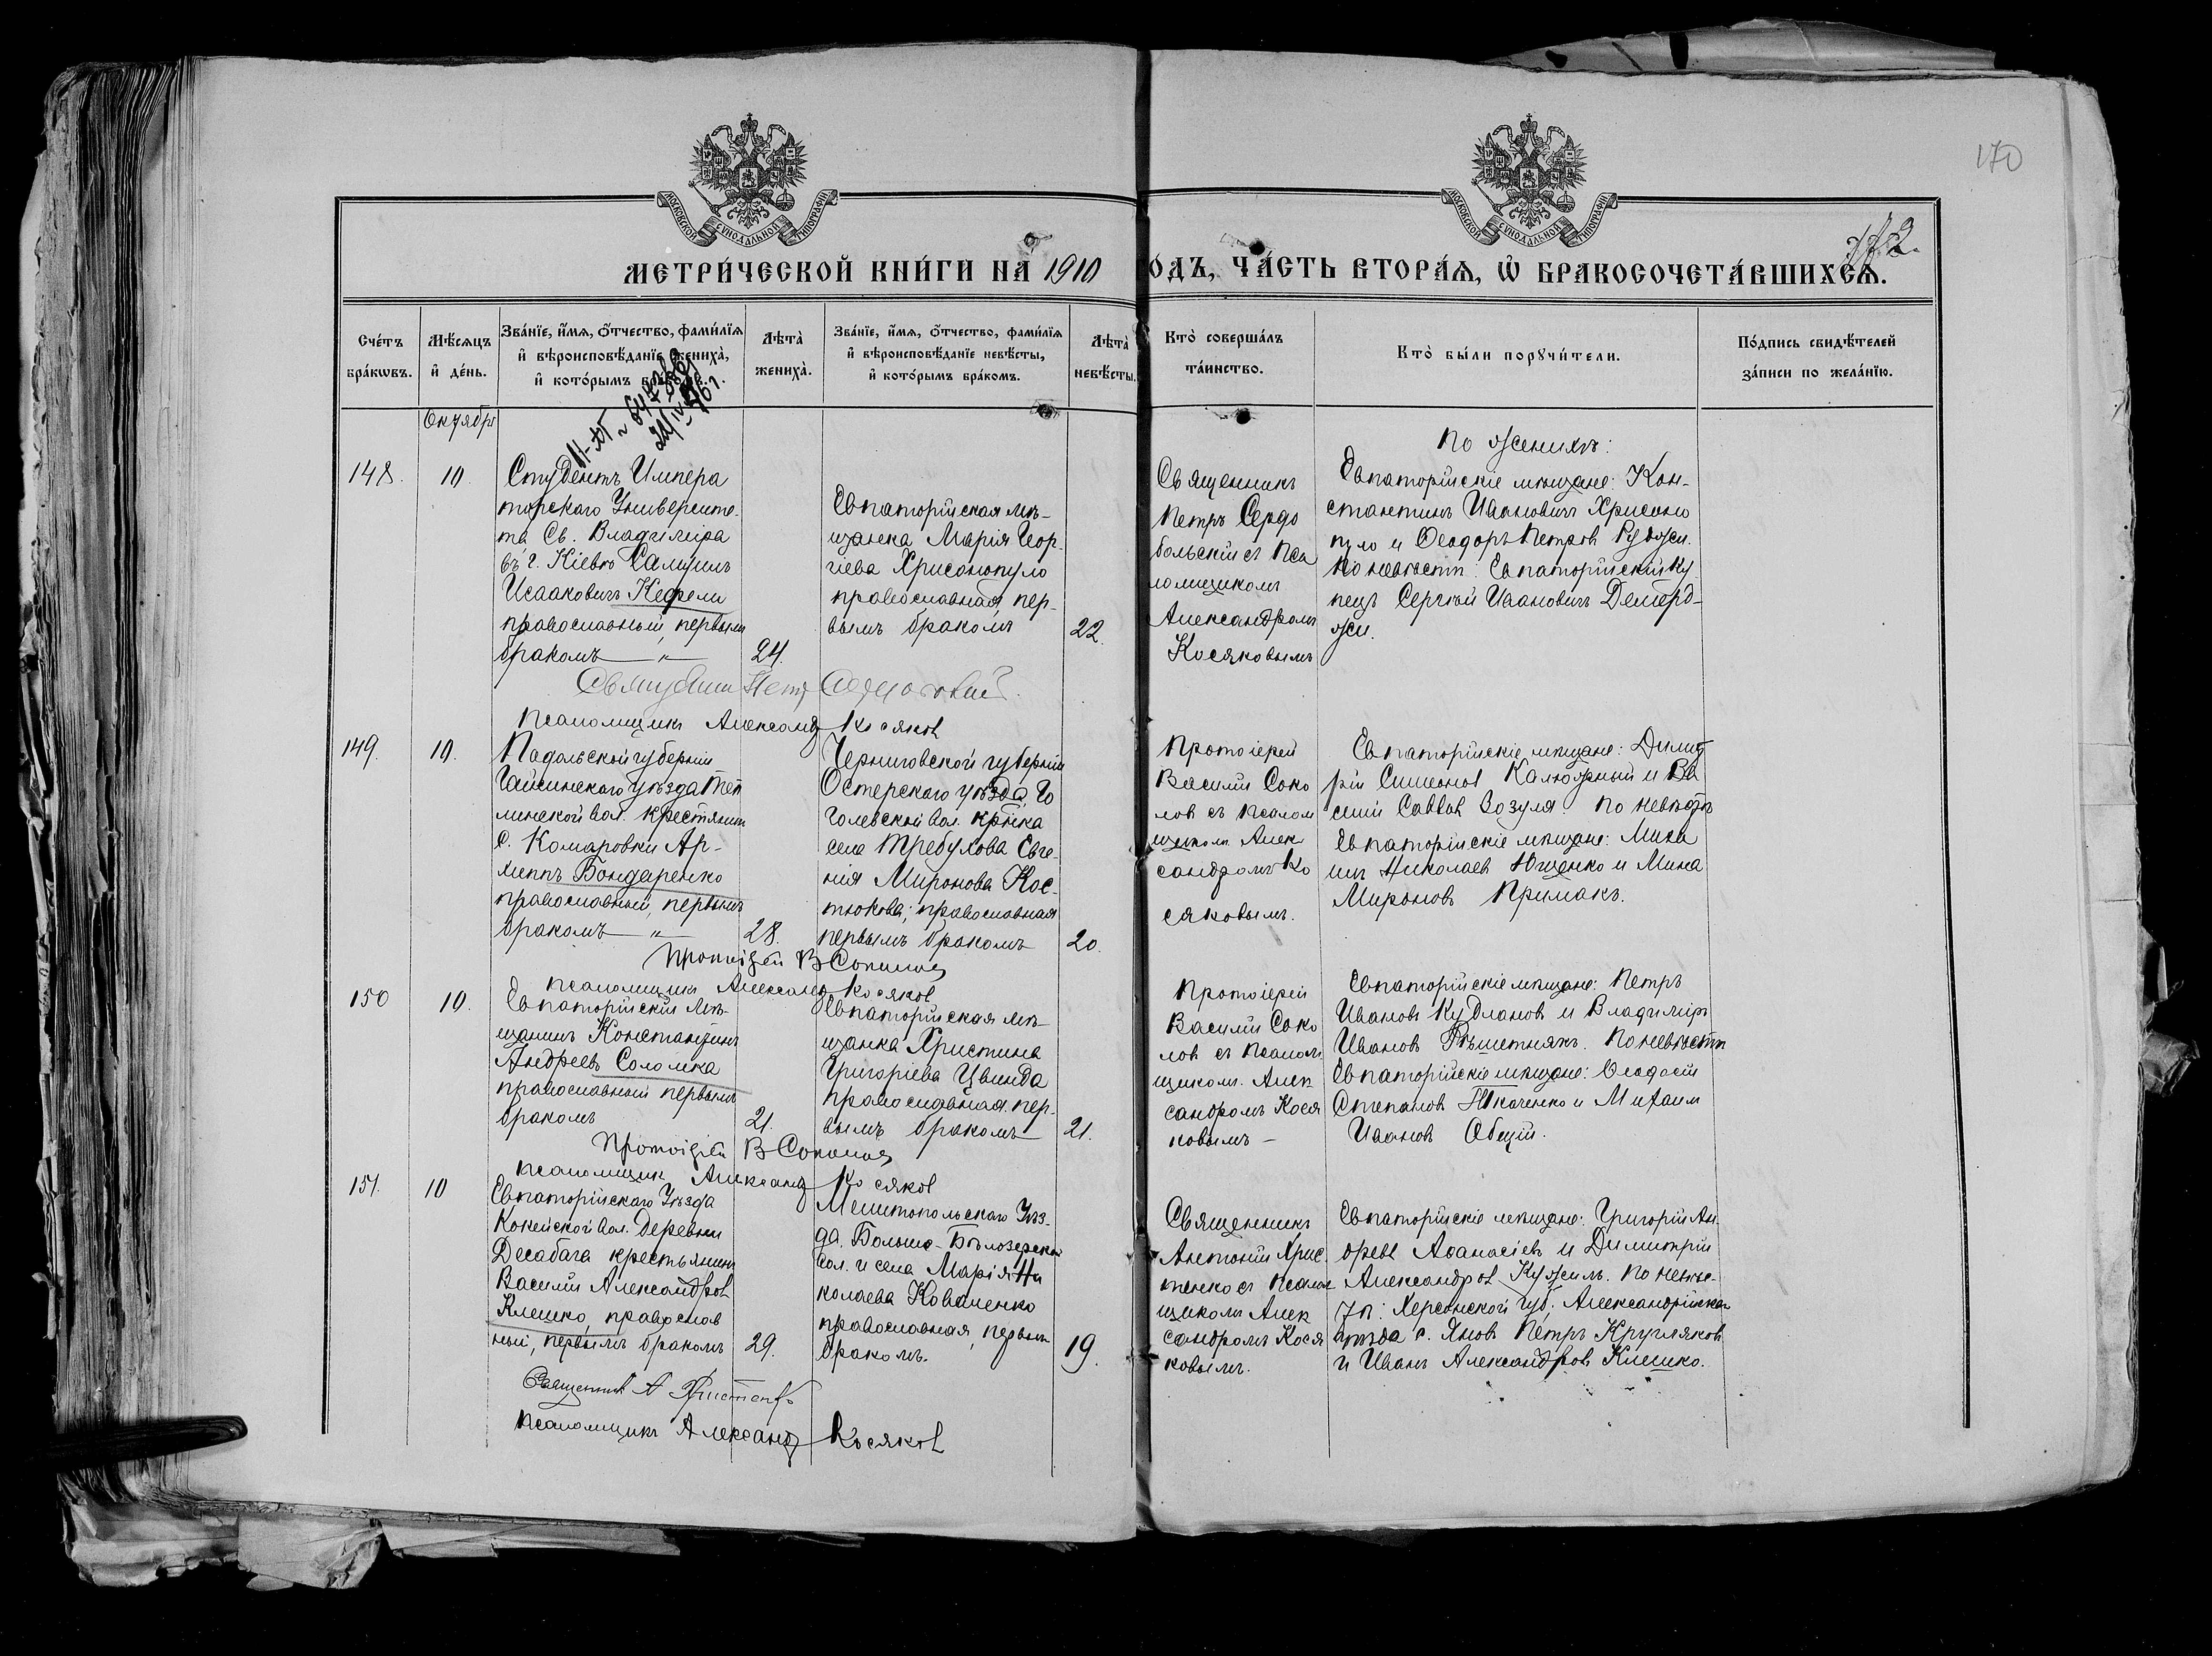 170
172.
МОСКОВСКОЙ СѴНОДАЛЬНОЙ ТИПОГРАФІИ
МОСКОВСКОЙ СѴНОДАЛЬНОЙ ТИПОГРАФІИ
МЕТРИ́ЧЕСКОЙ КНИ́ГИ НА 1910 ОДЪ, ЧА́СТЬ ВТОРА́Я, Ѡ҆ БРАКОСОЧЕТА́ВШИХСЯ.
Сче́тъ
бра́кѡвъ.
Мѣ́сяцъ
и҆ де́нь.
Зва́нїе, и҆́мя, ѻ҆́тчество, фами́лїя
и҆ вѣроисповѣ́данїе жениха̀,
и҆ кото́рымъ бра́комъ.
Лѣта̀
жениха̀.
Зва́нїе, и҆́мя, ѻ҆́тчество, фами́лїя
и҆ вѣроисповѣ́данїе невѣ́сты,
и҆ кото́рымъ бра́комъ.
Лѣта̀
невѣ́сты.
Кто̀ соверша́лъ
та́инство.
Кто̀ бы́ли порꙋчи́тели.
По́дпись свидѣ́телей
за́писи по жела́нїю.
Октябрь
148.
10.
Студентъ Импера
торскаго Университе-
та Св. Владиміра
въ г. Кіевѣ Самуилъ
Исааковичъ Кефели
православный, первымъ
бракомъ — „ —
24.
Евпаторійская мѣ-
щанка Марія Геор-
гіева Хрисонопуло
православная, пер-
вымъ бракомъ
22.
Священникъ
Петръ Сердо
больскій съ Пса
ломщикомъ
Александромъ
Косяковымъ
По женихѣ:
Евпаторійскіе мѣщане: Кон-
стантинъ Ивановичъ Хрисоно
пуло и Ѳеодоръ Петровъ
По невѣстѣ: Евпаторійскій Ку
пецъ Сергѣй Ивановичъ Демерд-
жи.
Священникъ Петръ Сердобольскій
Псаломщикъ Александръ Косяковъ
149.
10.
Падольской губерніи
Гайсинскаго уѣзда Теп
линской вол. крестянинъ
с. Комаровки Ар-
хиппъ Бондаренко
православный, первымъ
бракомъ — „ —
28.
Черниговской губерніи
Остерскаго уѣзда, Го
голевской вол. кр̅нка
села Требухова Евге-
нія Миронова Кос-
тюкова, православная
первымъ бракомъ
20.
Протоіерей
Василій Соко
ловъ съ псалом
щиком. Алек
сандромъ Ко
сяковымъ.
Евпаторійскіе мѣщане: Димит
рій Симеоновъ Калюжный и Ва
силій Саввовъ Зозуля. По невѣстѣ
Евпаторійскіе мѣщане: Миха
илъ Николаевъ Ющенко и Мина
Мироновъ Примакъ.
Протоіерей В Соколовъ
псаломщикъ Александръ Косяковъ
150
10.
Евпаторійскій мѣ-
щанинъ Константинъ
Андреевъ Соломка
православный первымъ
бракомъ
21.
Евпаторійская мѣ-
щанка Христина
Григоріева Цвинда
православная, пер-
вымъ бракомъ
21.
Протоіерей
Василій Соко
ловъ съ псалом
щиком. Алек
сандромъ Кося
ковымъ —
Евпаторійскіе мѣщане: Петръ
Ивановъ Кудлановъ и Владиміръ
Ивановъ Рѣшетнякъ. По невѣстѣ
Евпаторійскіе мѣщане: Ѳеодосій
Степановъ Ткаченко и Михаилъ
Ивановъ Общій.
Протоіерей В Соколовъ
псаломщикъ Александръ Косяковъ
151.
10
Евпаторійскаго Уѣзда
Кокейской вол. Деревни
Десабага крестьянинъ
Василій Александровъ
Клешко, православ
ный, первымъ бракомъ
29.
Мелитопольскаго Уѣз-
да. Больше-Бѣлозерской
вол. и села Марія Ни
колаева Коваленко
православная, первымъ
бракомъ.
19.
Священникъ
Антоній Хрис
тенко съ псалом
щикомъ Алек
сандромъ Кося
ковымъ.
Евпаторійскіе мѣщане: Григорій Ан-
дреевъ Аѳанасіевъ и Димитрій
Александровъ Кужиль. По невѣс-
тѣ: Херсонской Губ. Александрійскаго
уѣзда с. Янова Петръ Кругляковъ
и Иванъ Александровъ Клешко.
Священникъ А Христенко
псаломщикъ Александръ Косяковъ